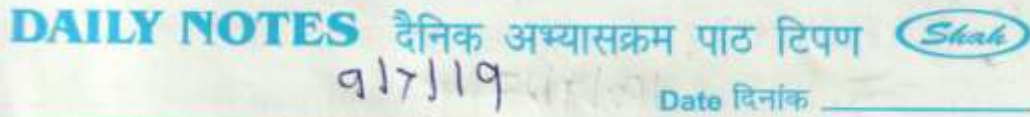 DAILY NOTES दैनिक अभ्यासक्रम पाठ टिपण Shah
9/7/19
Date दिनांक